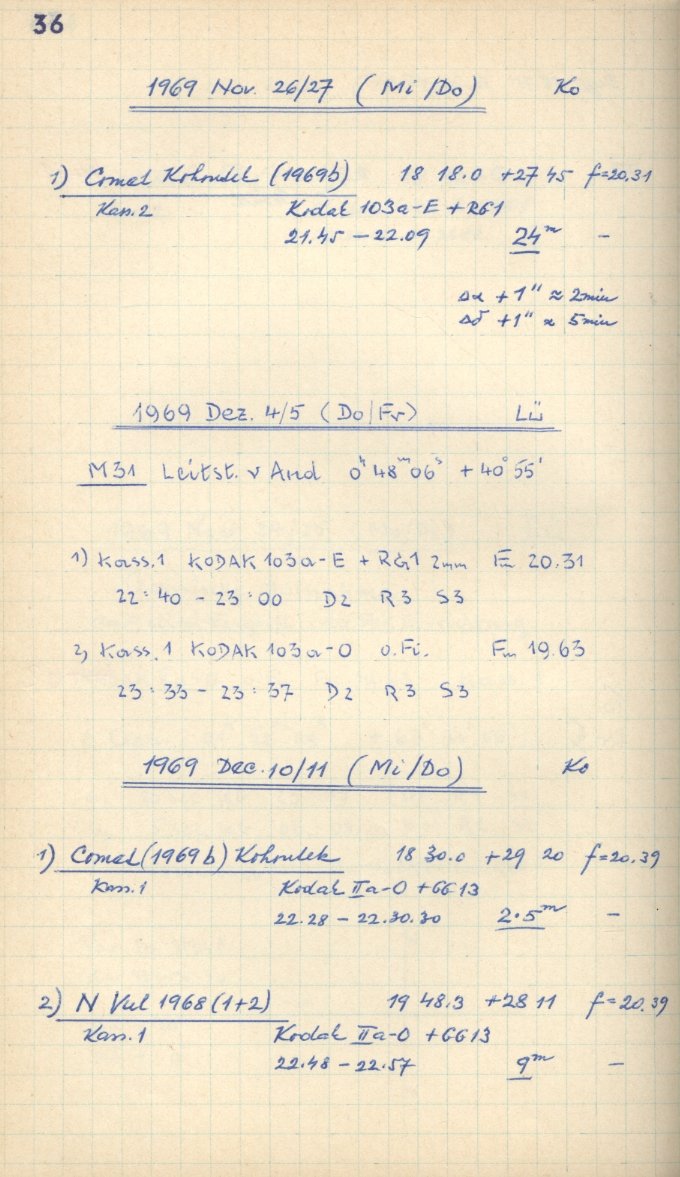 36
1969 Nov. 26/27 (Mi/Do) Ko
1) Comet Kohoutek (1969b) 18 18.0 +27 45 f=20.31
Kass.2 Kodak 103a-E + RG1
21.45 – 22.09 24ᵐ –
Δα +1" ≈ 2min
Δδ +1" ≈ 5min
1969 Dez. 4/5 (Do/Fr) Lü
M31 Leitst. ν And 0ʰ 48ᵐ 06ˢ +40° 55'
1) Kass.1 KODAK 103a-E + RG1 2mm Fm 20.31
22:40 – 23:00 D2 R3 S3
2) Kass.1 KODAK 103a-O o.Fi. Fm 19.63
23:33 – 23:37 D2 R3 S3
1969 Dec. 10/11 (Mi/Do) Ko
1) Comet (1969b) Kohoutek 18 30.0 +29 20 f=20.39
Kass.1 Kodak IIa-O + GG13
22.28 – 22.30.30 2.5ᵐ –
2) N Vul 1968 (1+2) 19 48.3 +28 11 f=20.39
Kass.1 Kodak IIa-O + GG13
22.48 – 22.57 9ᵐ –